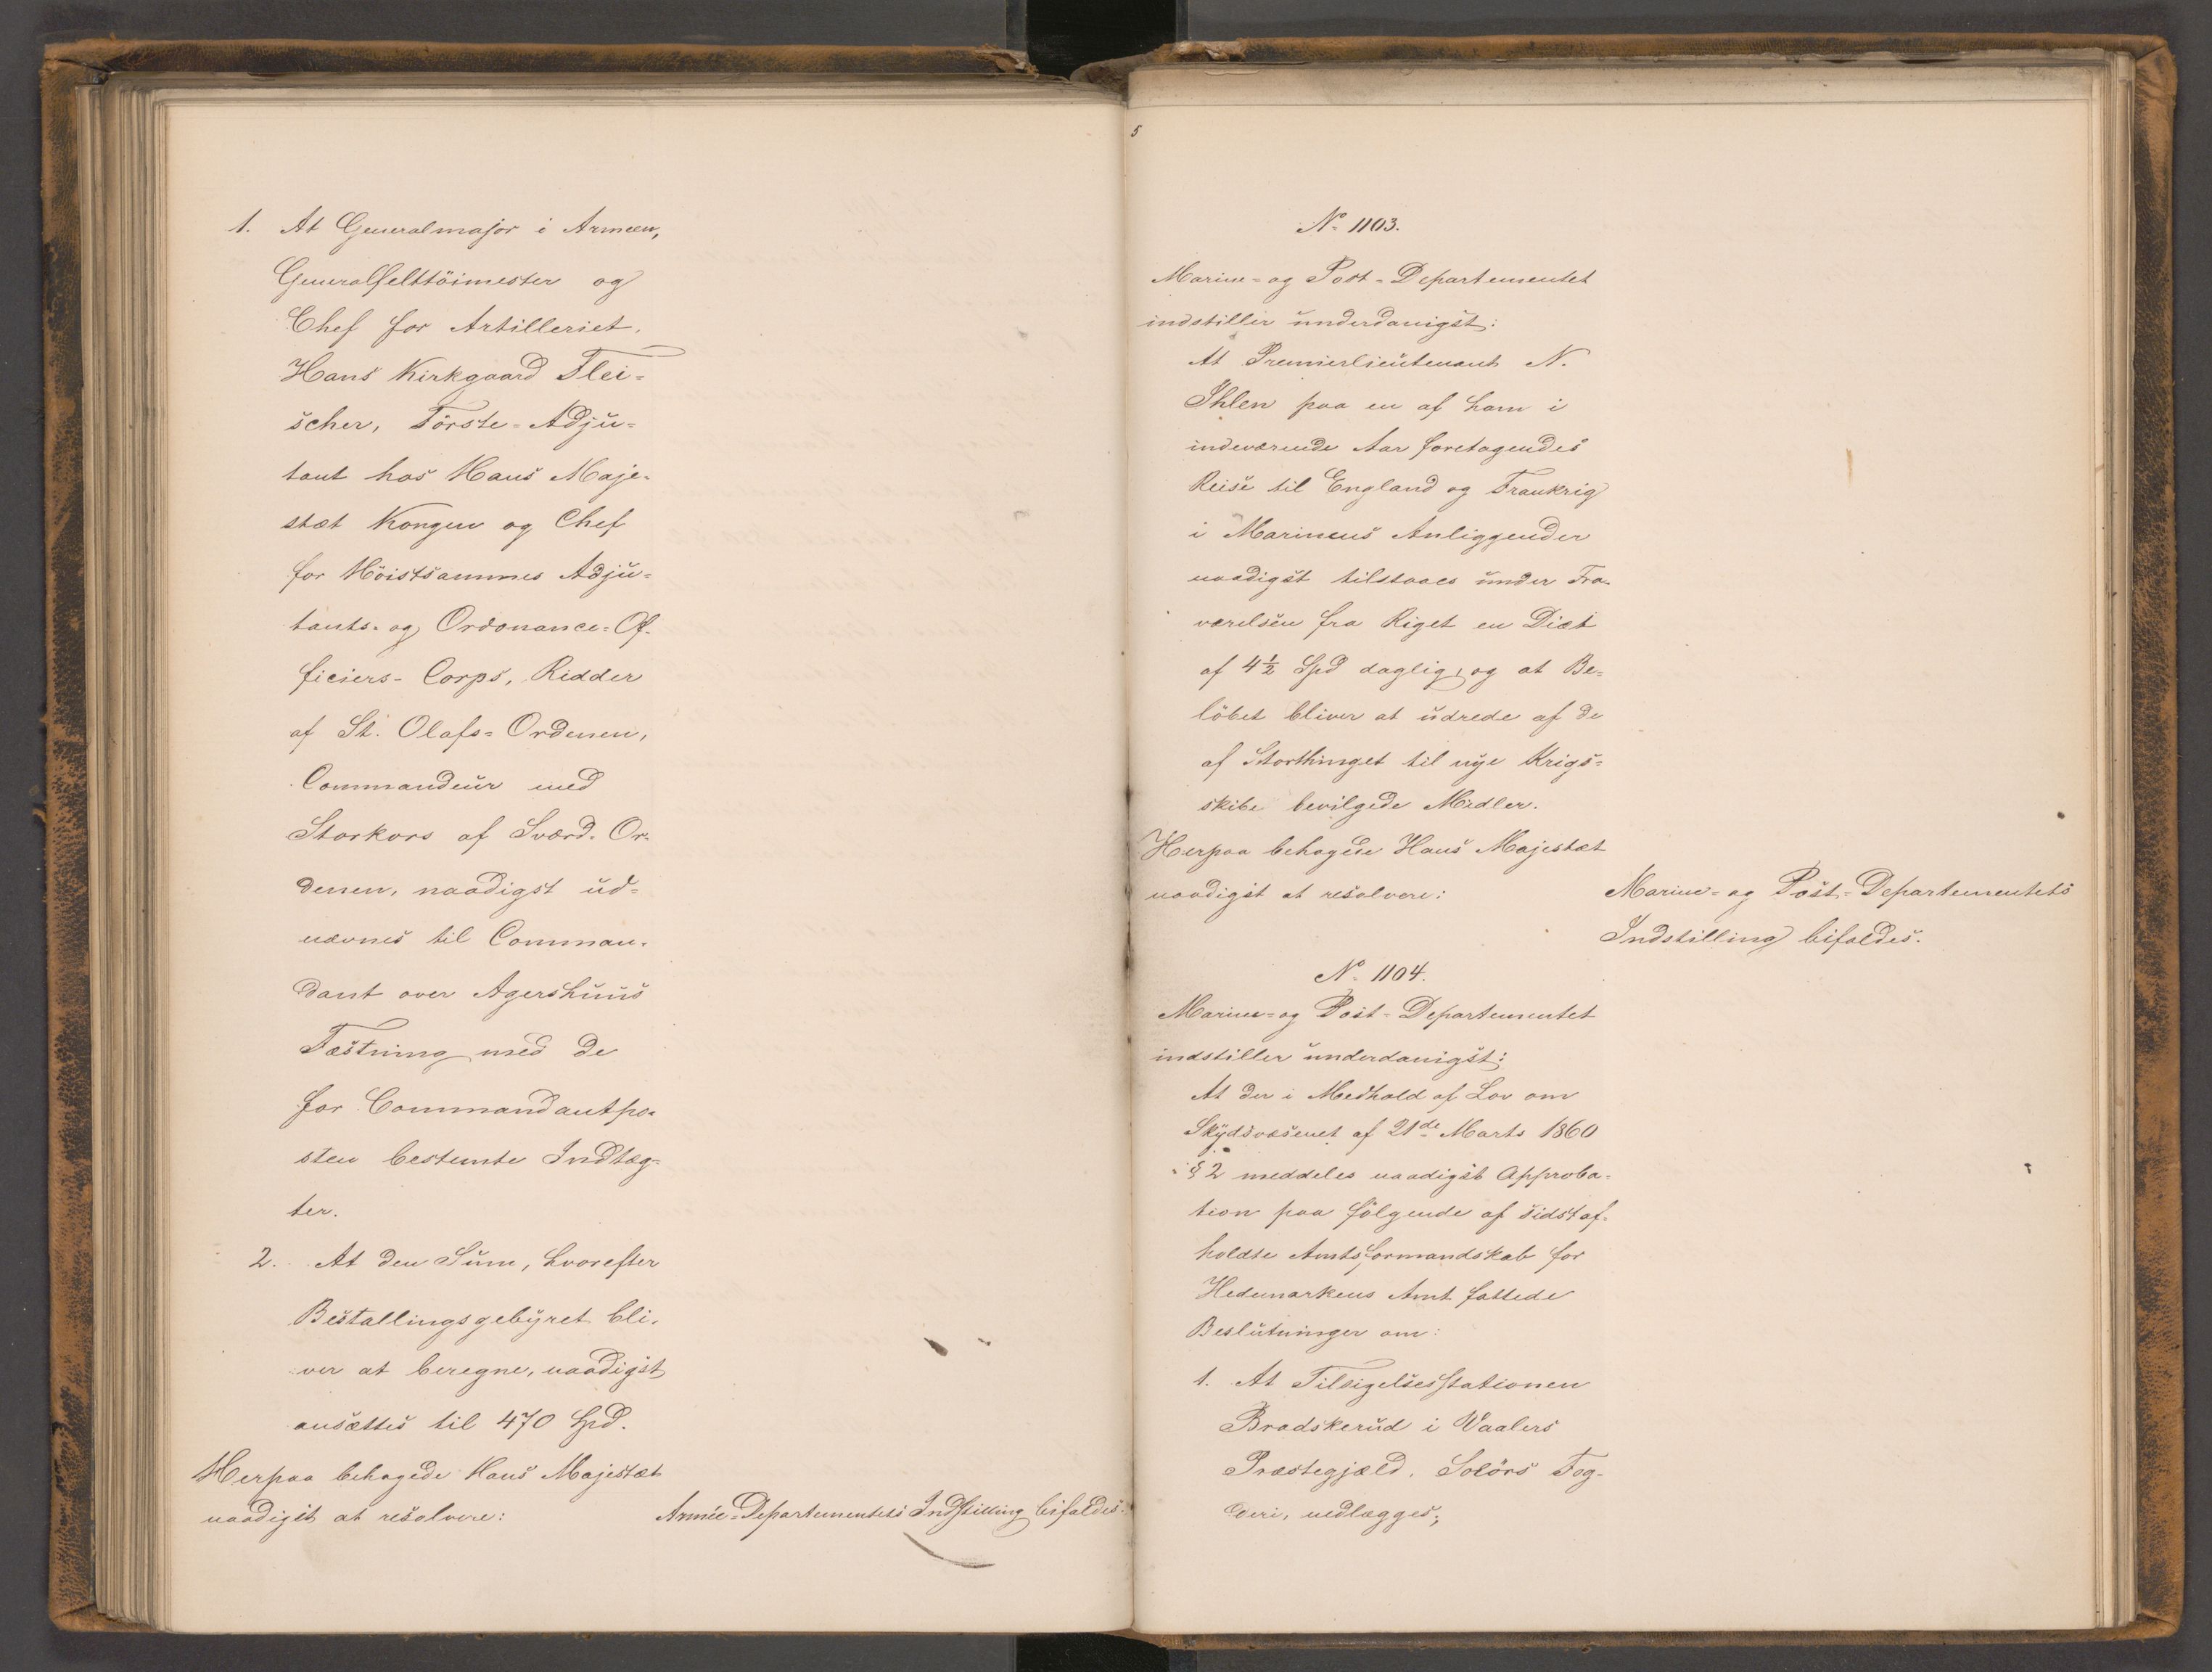 1. At Generalmajor i Armeen,
Generalfelttöimester og
Chef for Artilleriet,
Hans Kirkgaard Flei-
scher, Förste-Adju-
tant hos Hans Maje-
stæt Kongen og Chef
for Höistsammes Adju-
tants- og Ordonance-Of-
ficiers-Corps, Ridder
af St. Olafs-Ordenen,
Commandeur med
Storkors af Sværd-Or-
denen, naadigst ud-
nævnes til Comman-
dant over Agershuus
Fæstning med de
for Commandantpo-
sten bestemte Indtæg-
ter.
2. At den Sum, hvorefter
Bestallingsgebyret bli-
ver at beregne, naadigst
ansættes til 470 Spd.
Herpaa behagede Hans Majestæt
naadigst at resolvere:
Armée-Departementets Indstilling bifaldes.
5
No 1103.
Marine- og Post-Departementet
indstiller underdanigst:
At Premierlieutenant N.
Ihlen paa en af ham i
indeværende Aar foretagendes
Reise til England og Frankrig
i Marinens Anliggender
naadigst tilstaaes under Fra-
værelsen fra Riget en Diæt
af 4½ Spd daglig, og at Be-
löbet bliver at udrede af de
af Storthinget til nye Krigs-
skibe bevilgede Midler.
Herpaa behagede Hans Majestæt
naadigst at resolvere:
Marine- og Post-Departementets
Indstilling bifaldes.
No 1104.
Marine- og Post-Departementet
indstiller underdanigst:
At der i Medhold af Lov om
Skydsvæsenet af 21de Marts 1860
§ 2 meddeles naadigst Approba-
tion paa fölgende af sidst af-
holdte Amtsformandskab for
Hedemarkens Amt fattede
Beslutninger om:
1. At Tilsigelsesstationen
Bradskerud i Vaalers
Præstegjæld, Solörs Fog-
deri, nedlægges;